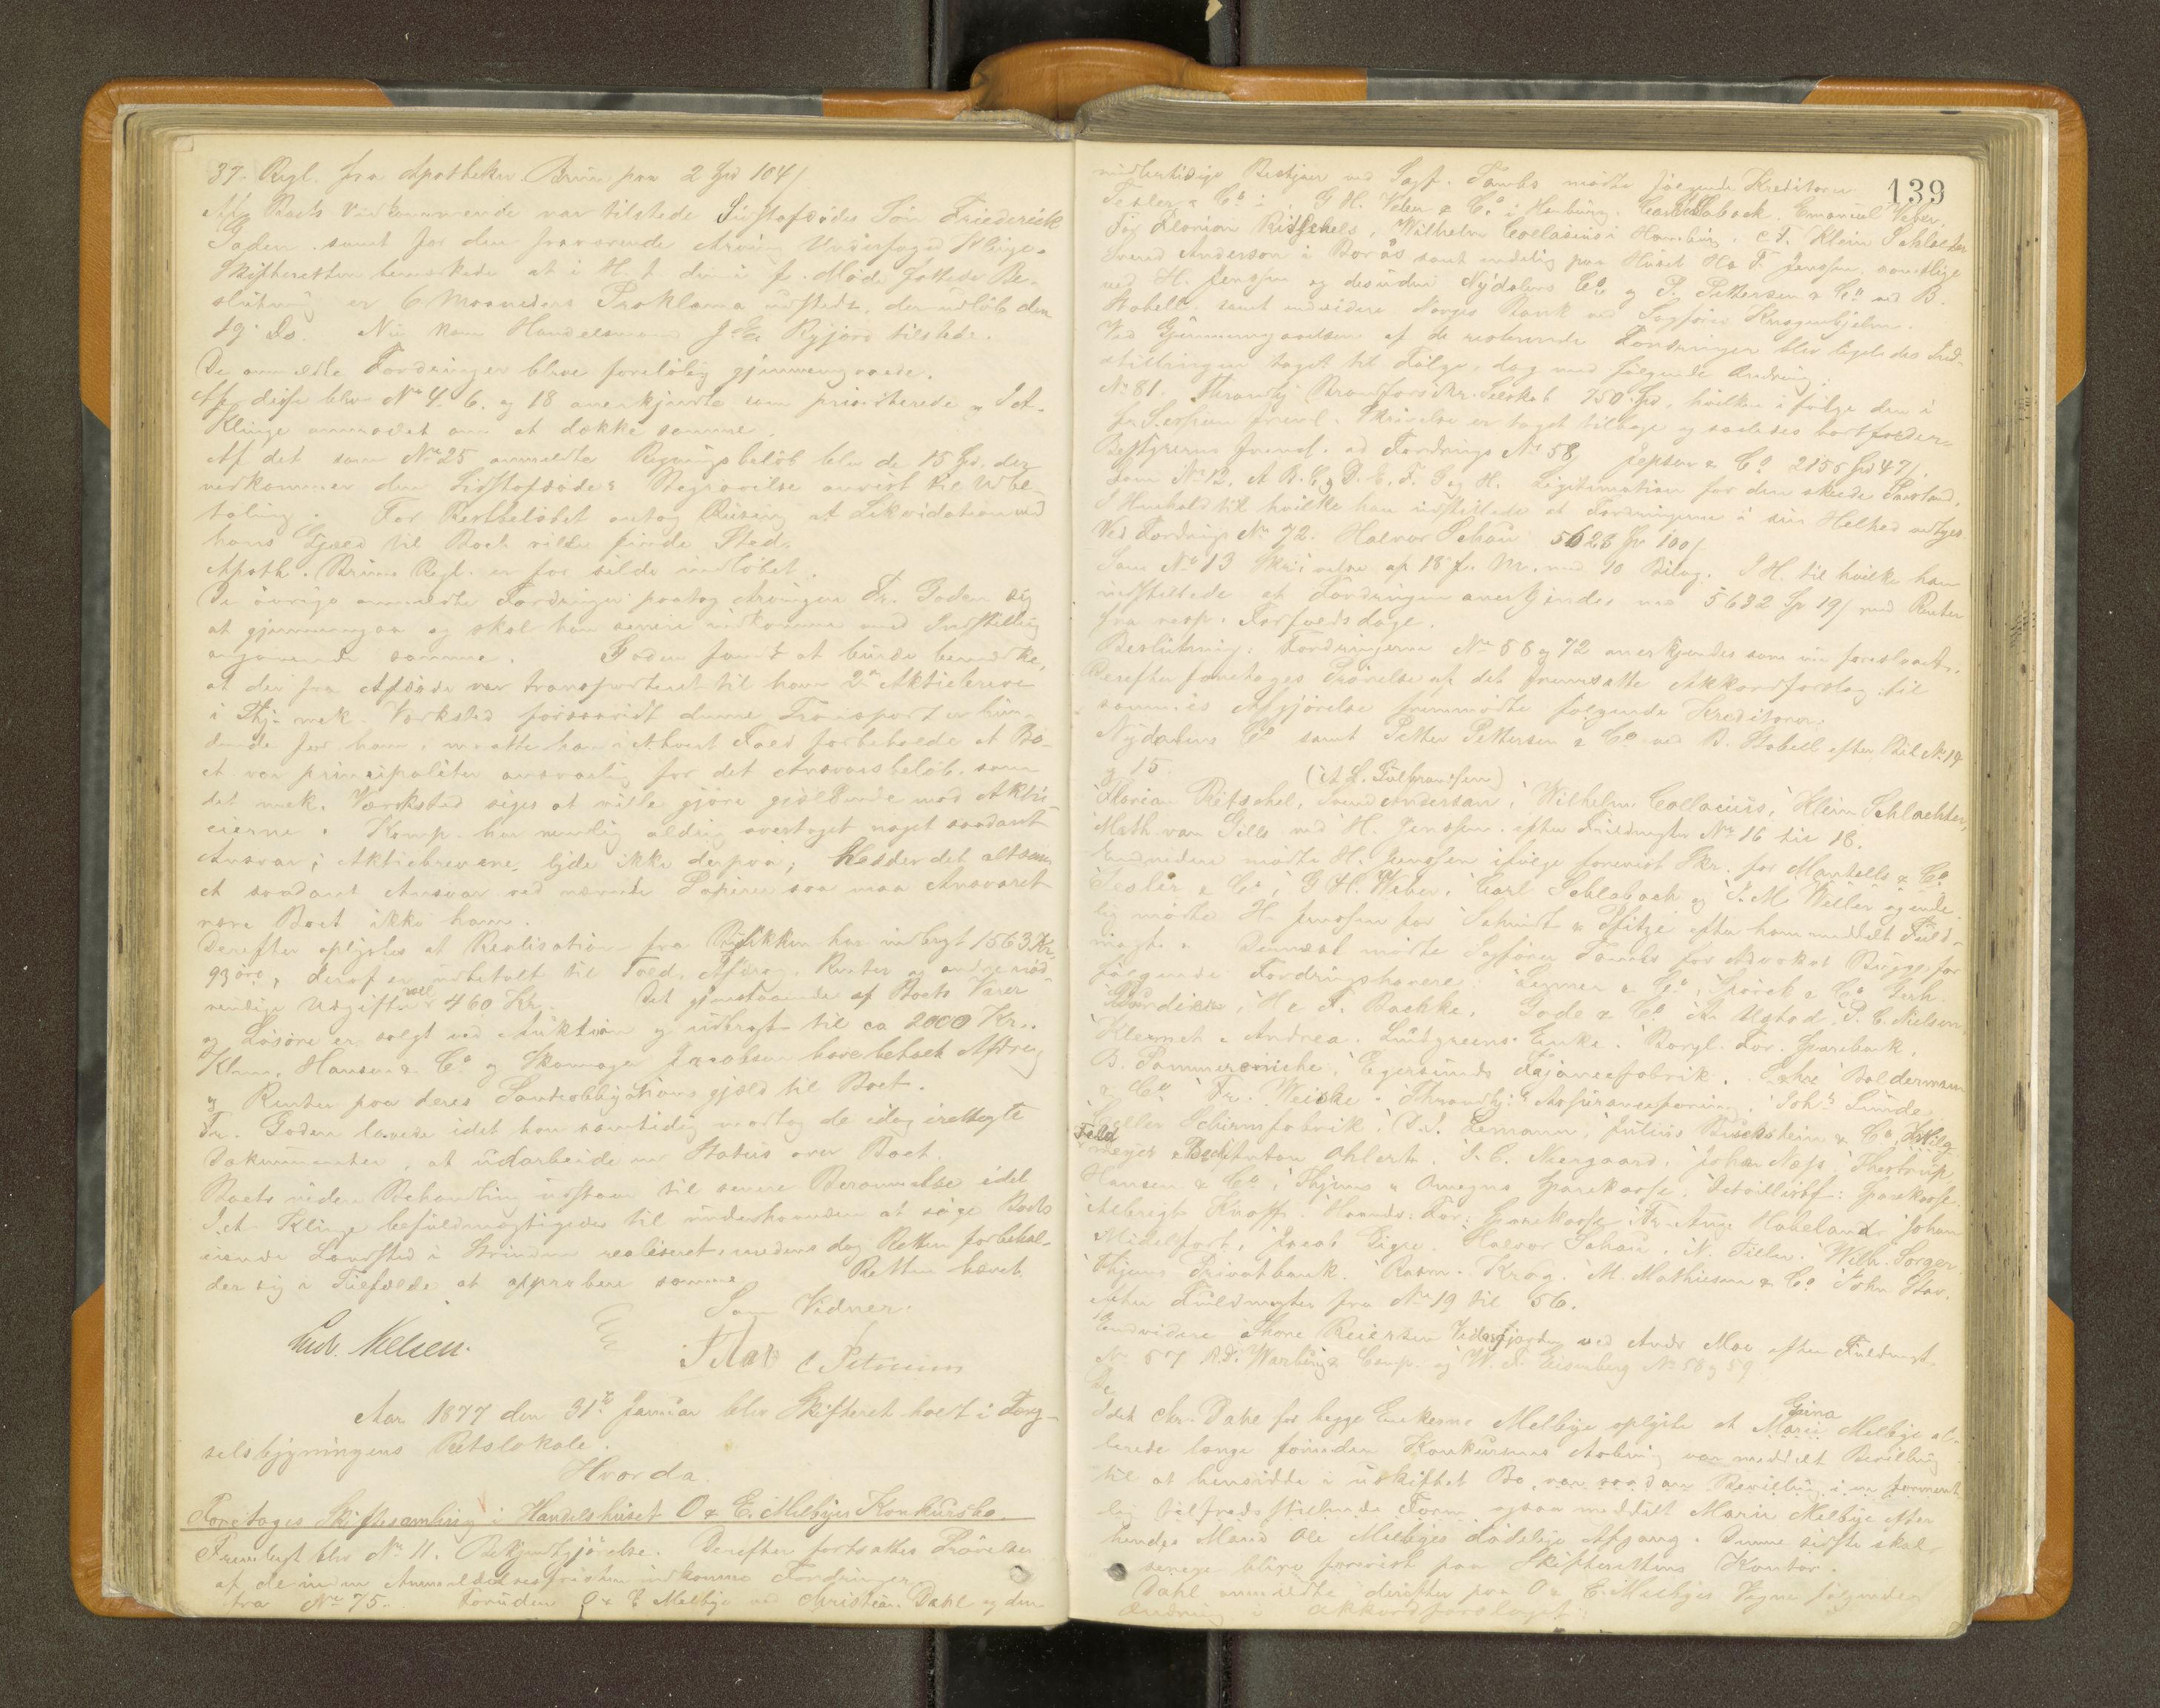 37. Regl. fra Apotheker Brun paa 2 Spd 104 /
Paa Boets Vedkommende var tilstede Sidstafdødes Søn Friederick
Gaden samt for den fraværende Arving Underfoged Klinge.
Skifteretten bemærkede at i H. t. den i f. Møde fattede Be-
slutning er 6 Maaneders Proklama udstedt, der udløb den
19. ds. Nu kom Handelsmand J. E. Ryjord tilstede.
De anmeldte Fordringer bleve foreløbig gjennemgaaede.
Af disse blev No 4. 6. og 18 anerkjendte som prioriterede og
Klinge anmodet om at dække samme.
Af det som No 25 anmeldte Regningsbeløb blev de 15 Spd, der
vedkommer den Sidstafdødes Begravelse anvist til Udbe-
taling. For Restbeløbet antog Rusing at Likvidation med
hans Gjæld til Boet vilde finde Sted.
Apoth. Bruns Regl. er for silde indløbet.
De øvrige anmeldte Fordringer paatog Arvingen Fr. Gaden sig
at gjennemgaa og skal han senere indkomme med Indstilling
angaaende samme. Gaden fandt at burde bemærke,
at der fra Afdøde var transporteret til ham 2de Aktiebreve
i Thj. mek. Værksted forsaavidt denne Transport er bin-
dende for ham, maatte han i ethvert Fald forbeholde at Bo-
et var principaliter ansvarlig for det Ansvarsbeløb, som
det mek. Værksted siges at ville gjøre gjældende mod Aktie-
eierne. Komp. har nemlig aldrig overtaget noget saadant
Ansvar; Aktiebrevene lyde ikke derpaa; hæfter det altsaa
et saadant Ansvar ved nævnte Papirer saa maa Ansvaret
være Boet ikke ham.
Derefter oplystes at Realisation fra Butikken har indbragt 1563 Kr.
93 øre, deraf er udbetalt til Told, Afdrag, Renter og andre nød-
vendige Udgifter vel 460 Kr. Det gjenstaaende af Boets Varer
og Løsøre er solgt ved Auktion og udbragt til ca 2000 Kr..
Klem. Hansen & Co og Skomager Jacobsen have betalt Afdrag
og Renter paa deres Panteobligations gjæld til Boet.
Fr. Gaden lovede idet han samtidig modtog de idag irettelagte
Dokumenter, at udarbeide en Status over Boet.
Boets videre Behandling udstaar til senere Berammelse idet
Klinge befuldmægtigedes til underhaanden at søge Boets
eiende Landsted i Strinden realiseret, medens dog Retten forbehol-
der sig i Tilfælde at approbere samme. Retten hævet.
Som Vidner:
Ludv. Nielsen.
C Petersen
Aar 1877 den 31te Januar blev Skifteret holdt i Fæng-
selsbygningens Retslokale.
Hvorda
Foretoges Skiftesamling i Handelshuset O & E. Melbyes Konkursbo.
Fremlagt blev No 11. Bekjendtgjørelse. Derefter fortsattes Prøvelsen
af de inden Anmeldelsesfristen indkomne Fordringer
fra No 75. Foruden O & E Melbye ved Christian Dahl og den
139
midlertidige Bestyrer ved Sagf. Tambs mødte følgende Kreditorer
Tesler & Co i, G H. Weber & Co i Hamburg. Carl Schlabach. Emanuel Weber,
for Florian Ritschels, Wilhelm Collasius i Hamburg, C F. Klein Schlachter
Svend Anderson i Borås samt endelig paa Huset Hs F. Jenssen, samtlige
ved H. Jenssen og desuden Nydalens Co og P. Pettersen & Co ved B.
Stabell samt endvidere Norges Bank ved Sagfører Kragenhjelm.
Ved Gjennemgaaelsen af de resterende Fordringer blev ligeledes Ind-
stillingen taget til Følge, dog med følgende Ændring:
No 81. Throndhj. Brandforsikr. Selskab 750 Spd, hvilken i følge den i
Sessionen freml. Skrivelse er taget tilbage og saaledes bortfalder.
Bestyreren freml. ad Fordrings No 58 Jepsen & Co 2156 Spd 47 /.
Som No 12. A B. C, D. E. F. G og H. Legitimation for den skeede Søvstand.
I Henhold til hvilke han indstillede at Fordringerne i sin Helhed vedtages
Ved Fordrings No 72. Halvor Schau 5628 Sp 100 /
Som No 13 Skrivelse af 18 f. M. med 10 Bilag. I H. til hvilke han
indstillede at Fordringen anerkjendes med 5632 Sp 19 / med Renter
fra resp. Forfaldsdage.
Beslutning: Fordringerne No 58 og 72 anerkjendes som nu foreslaaet.
Derefter foretoges Prøvelse af det fremsatte Akkordforslag til
sammes Afgjørelse fremmødte følgende Kreditorer.
Nydalens Co samt Petter Pettersen & Co ved B. Stabell efter Bil No 14
og 15. (A L. Gulbransen)
Florian Ritschel, Svend Anderson, Wilhelm Collasius, Klein Schlachter,
Math. van Gills ved H. Jenssen efter Fuldmagter No 16 til 18.
Endvidere mødte H. Jenssen ifølge forevist Skr. for Mantells & Co
Tesler & Co, G H. Weber, Carl Schlabach og F. M. Weller og ende-
lig mødte H. Jenssen for Schmidt & Pfitze efter ham meddelt Fuld-
magt. Dernæst mødte Sagfører Tambs for Advokat Bugge for
følgende Fordringshavere: Leymer & Co, Spörck & Co Gerh.
Lundien, H & F. Bachke, Gade & Co, A Ugstad, P. C. Nielsen,
Klemet & Andrea. Lundgreens Enke. Borgl. For. Sparebank,
B. Sommerschiche, Egersunds Fajancefabrik. Bøldermann
& Co Fr. Weiske. Throndhj: Assuranceforening. Johs Sunde.
Haller Schirmfabrik, D. J. Lemann, Julius Bierstein & Co,
Feldmeyer & Bech, Anton Ohlert, J. C. Neergaard. Johan Næss, Thostrup
Hansen & Co, Thjems & Omegns Sparekasse. Sparekasse
Albregt Knoff. Haands: For: Sparekasse Fr. Aug. Habeland, Johan
Midelfart, Jacob Digre. Halvor Schau. N. Tiller. Wilh. Sorger.
Thjems Privatbank. Rasm. Krog. M. Mathiesen & Co John Stav.
efter Fuldmagter fra No 19 til 56.
Endvidere Thore Reiersen ved Andr Moe efter Fuldmagt
No 57 R. D. Warburg & Comp. og W. F. Eisenberg No 58 og 59
De
Idet Chr. Dahl for begge Enkerne Melbye oplyste at Gina Marie Melbye al-
lerede længe forinden Konkursens Aabning var meddelt Bevilling
til at hensidde i uskiftet Bo, var saadan Bevilling i en forment-
lig tilfredsstillende Form ogsaa meddelt Marie Melbye efter
hendes Mand Ole Melbyes dødelige Afgang. Denne sidste skal
senere blive forevist paa Skifterettens Kontor.
Dahl anmeldte derefter paa O & E. Melbyes Vegne følgende
Ændring i Akkordforslaget: